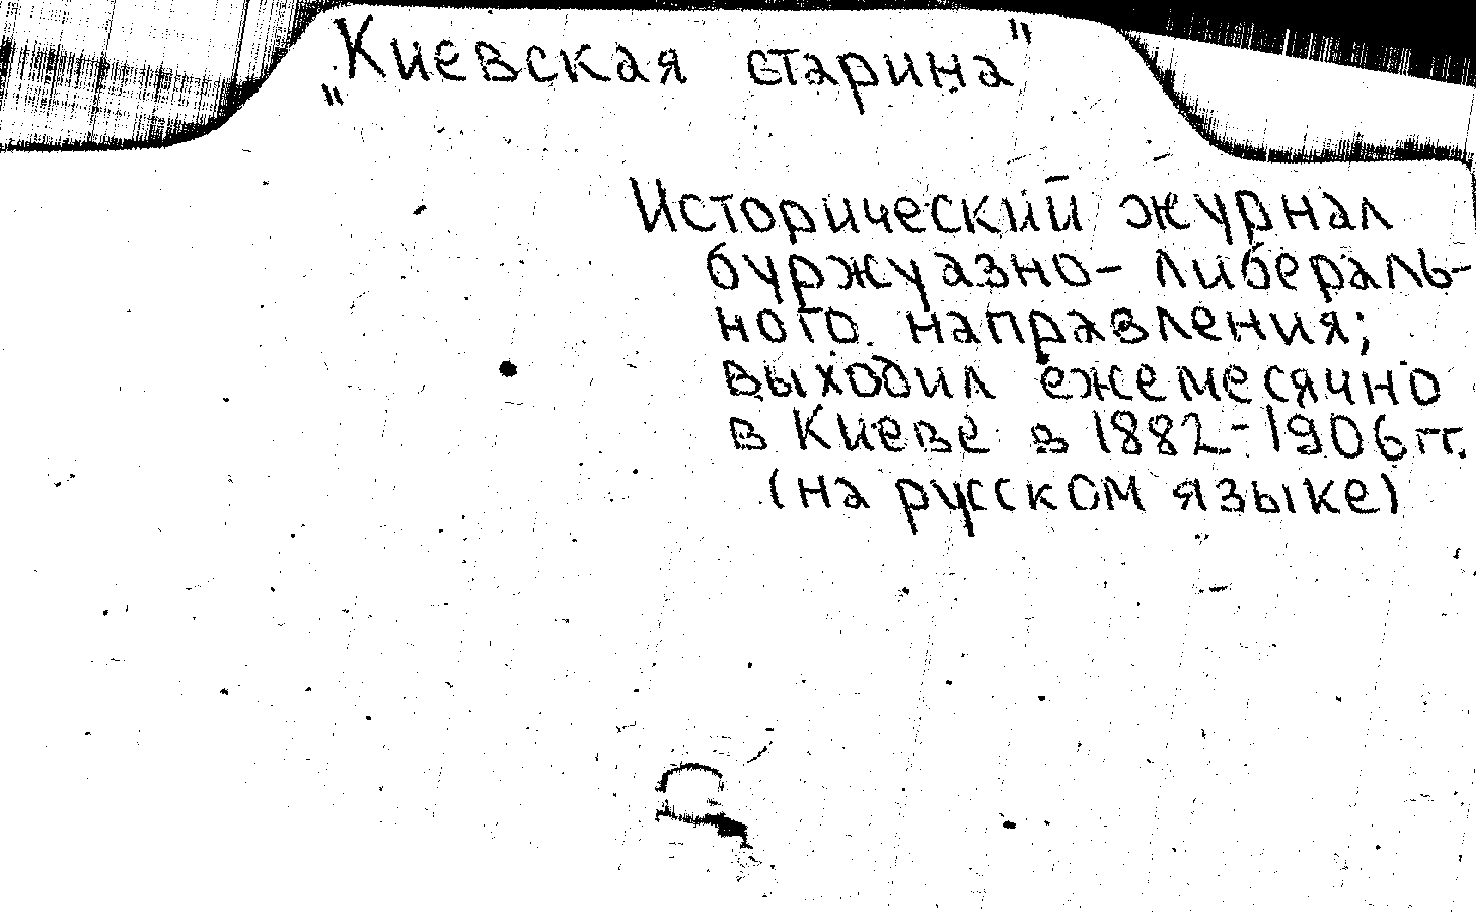 „Киевская старина"
Исторический журнал
буржуазно-либераль-
ного направления;
выходил ежемесячно
в Киеве в 1882-1906 гг.
(на русском языке)